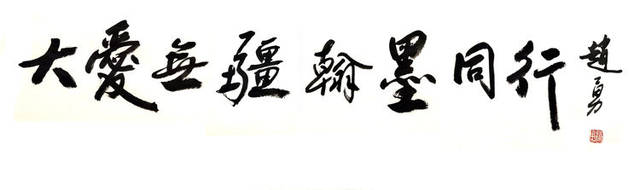 大愛無疆翰墨同行
趙勇